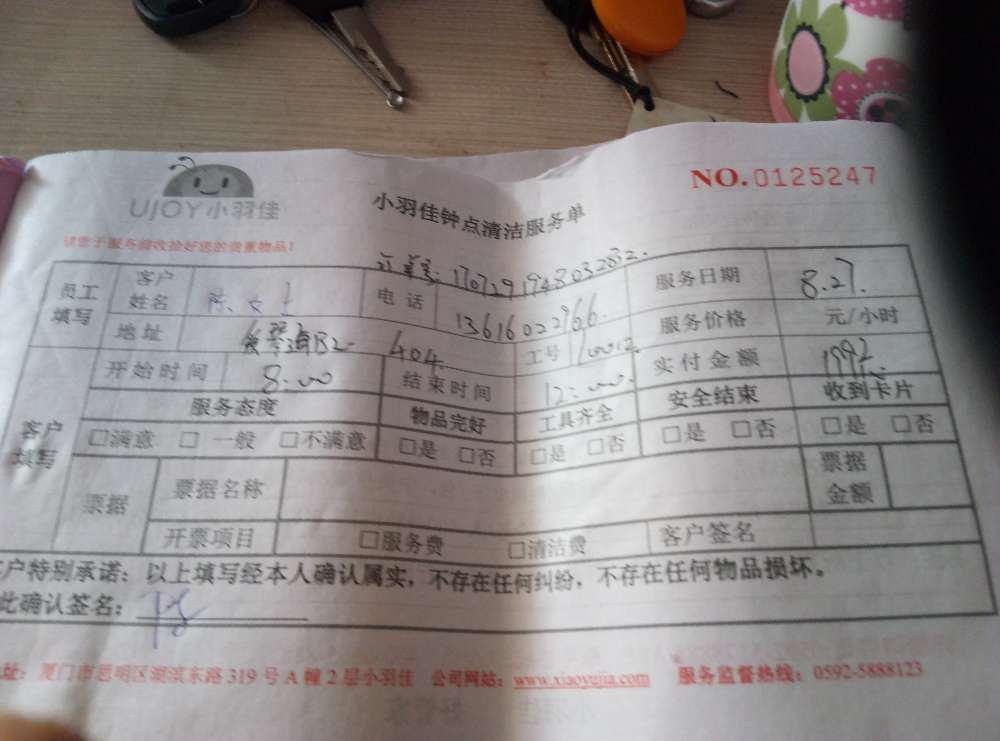 UJOY小羽佳
小羽佳钟点清洁服务单
NO.0125247
请您于服务前收拾好您的贵重物品!
170729194803282.
员工填写 客户姓名 陈女士 电话 13616022966. 服务日期 8.27.
地址 B2- 404. 工号 服务价格 元/小时
开始时间 8:00 结束时间 12:00. 实付金额
客户填写 服务态度 物品完好 工具齐全 安全结束 收到卡片
□满意 □一般 □不满意 □是 □否 □是 □否 □是 □否 □是 □否
票据 票据名称 票据金额
开票项目 □服务费 □清洁费 客户签名
客户特别承诺：以上填写经本人确认属实，不存在任何纠纷，不存在任何物品损坏。
此确认签名：
址：厦门市思明区湖滨东路319号A幢2层小羽佳 公司网站：www.xiaoyujia.com 服务监督热线：0592-5888123